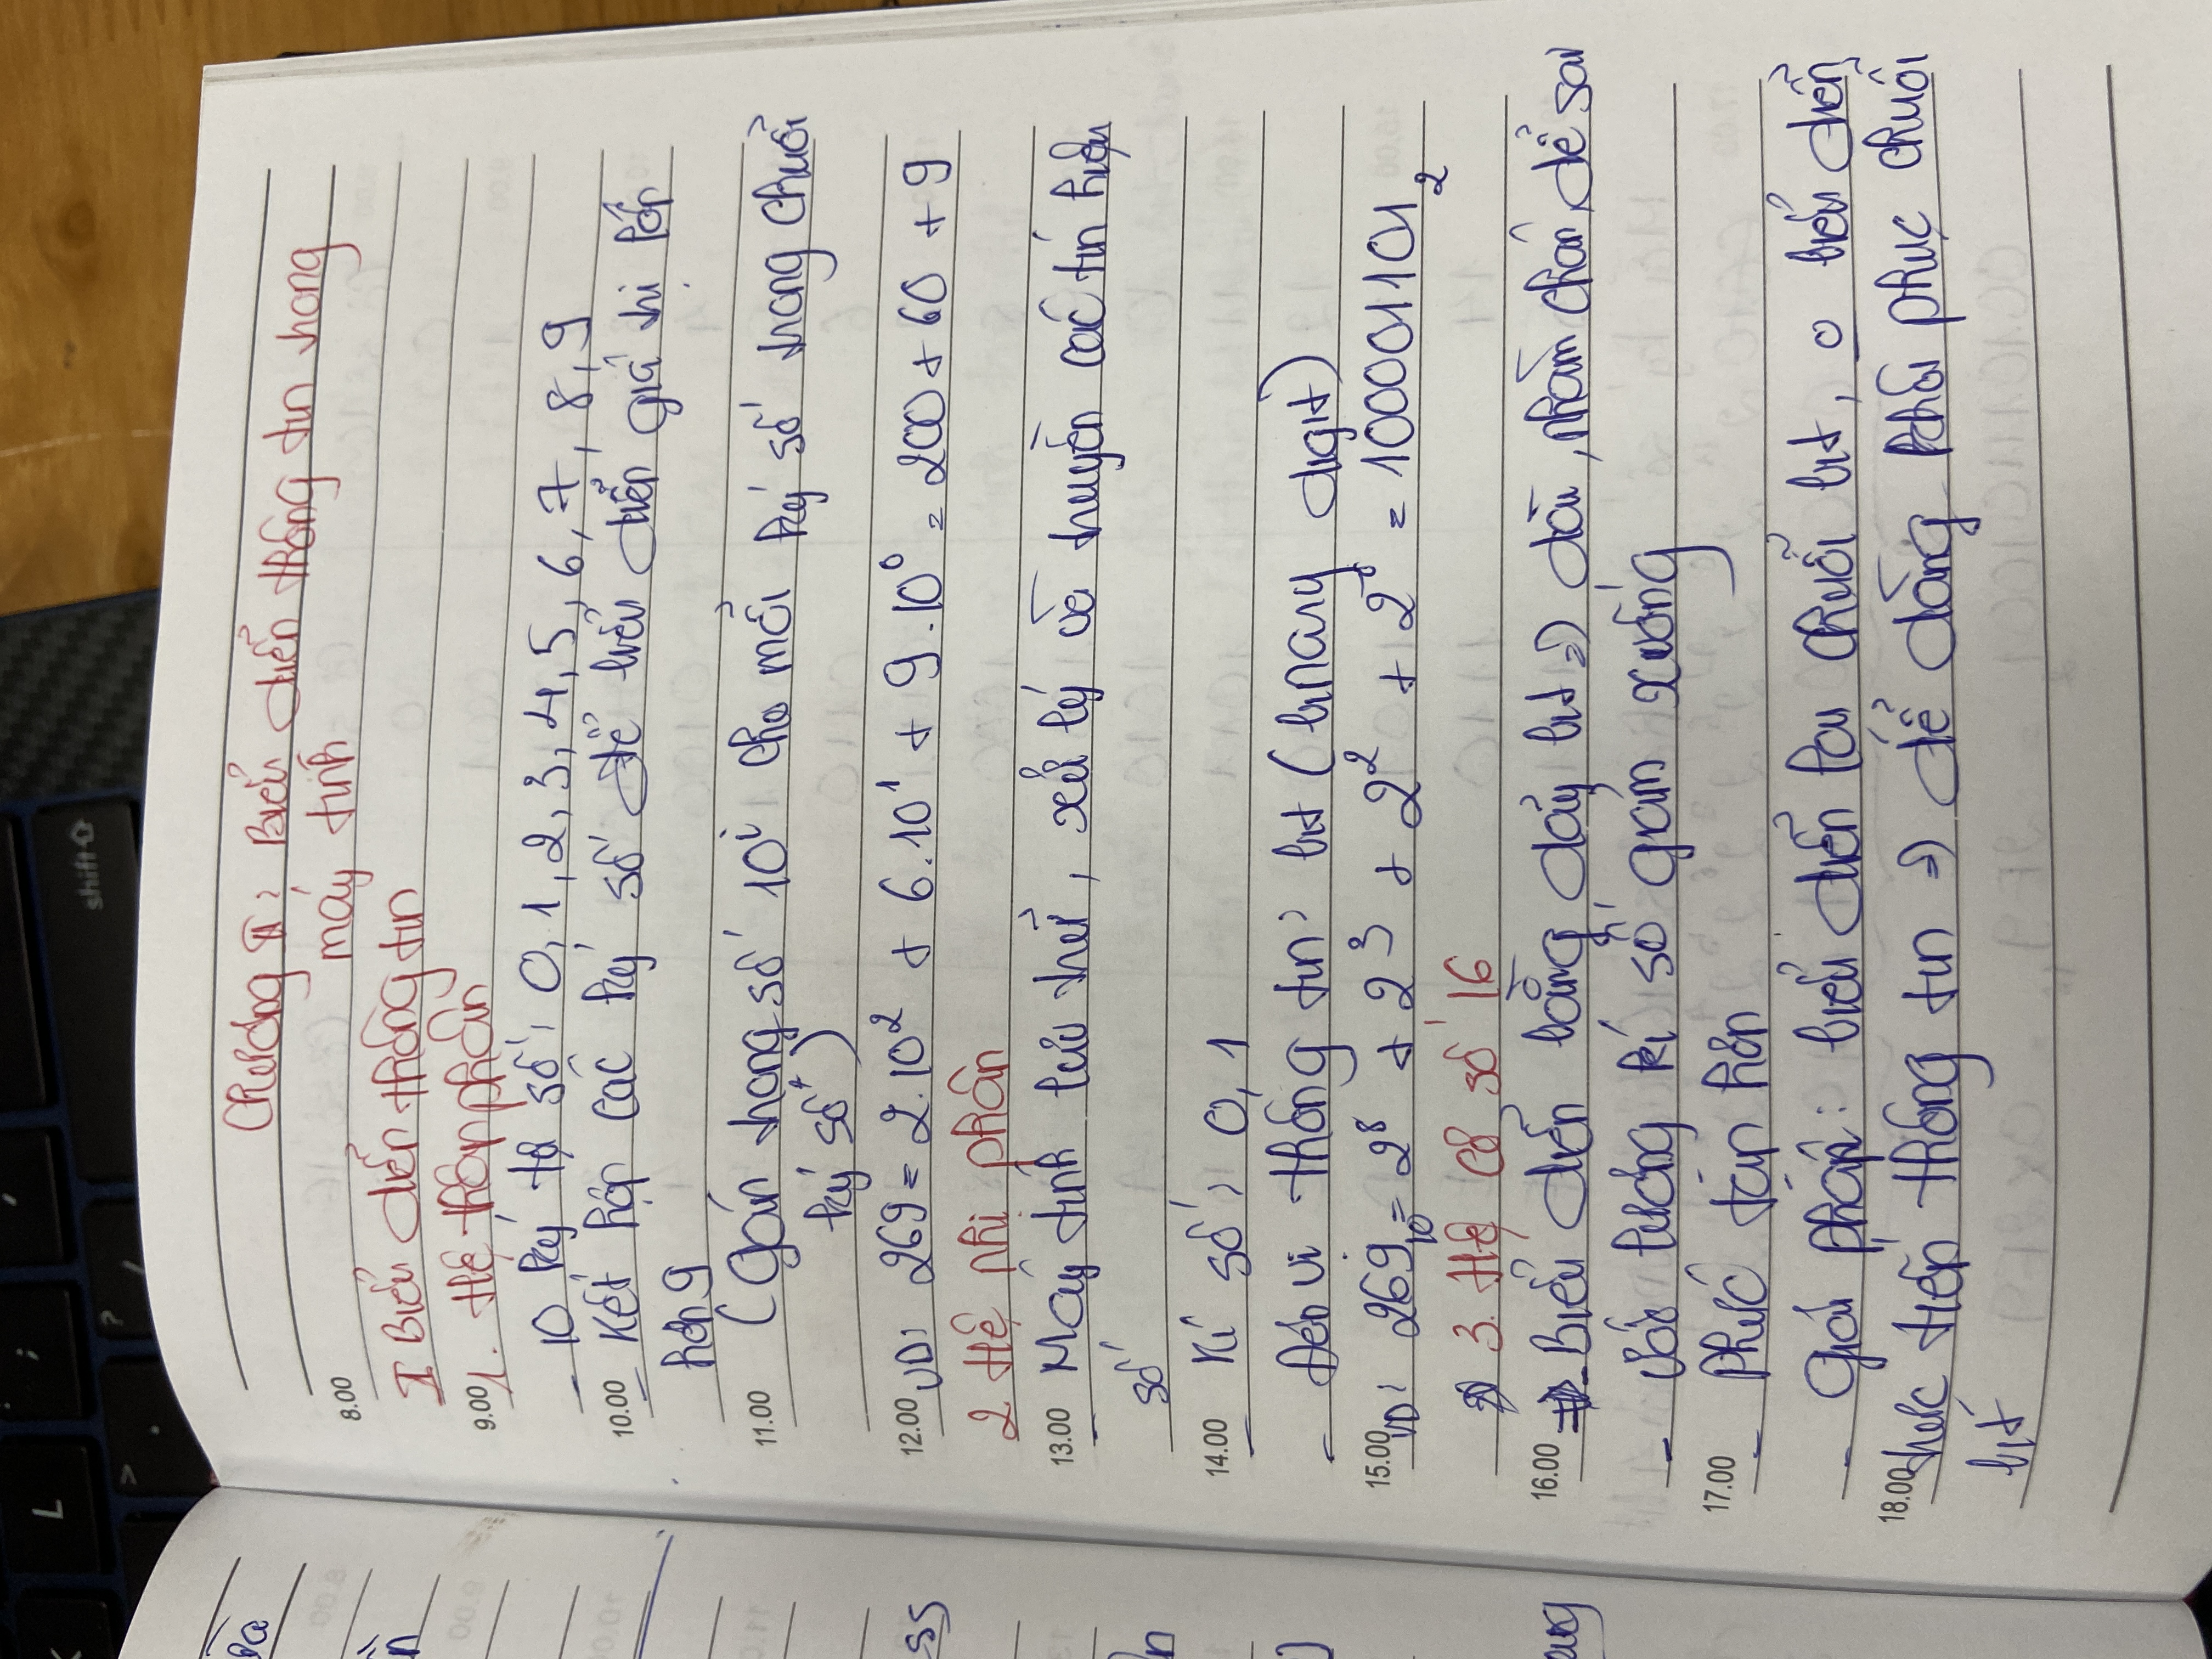 L
;
shift
>
.
?
/
Chương II: Biểu diễn thông tin trong
8.00 máy tính
I Biểu diễn thông tin
9.00 1. Hệ thập phân
- 10 ký tự số: 0, 1, 2, 3, 4, 5, 6, 7, 8, 9
10.00 - Kết hợp các ký số để biểu diễn giá trị lớn
hơn 9
11.00 (gán trọng số 10^i cho mỗi ký số trong chuỗi
ký số)
12.00 VD: 269 = 2.10² + 6.10¹ + 9.10⁰ = 200 + 60 + 9
2 Hệ nhị phân
13.00 - Máy tính lưu trữ, xử lý và truyền các tín hiệu
số
14.00 - Kí số: 0, 1
- Đơn vị thông tin: bit (binary digit)
15.00 VD: 269₁₀ = 2⁸ + 2³ + 2² + 2⁰ = 100001101₂
3. Hệ cơ số 16
16.00 - Biểu diễn bằng dãy bit => dài, nhàm chán, dễ sai
- số lượng kí số giảm xuống
17.00 - Phức tạp hơn
- Giải pháp: biểu diễn lại chuỗi bit, 0 biểu diễn
18.00 trực tiếp thông tin => dễ dàng khôi phục chuỗi
bit